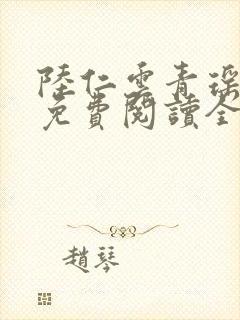 陸仁雲青瑤
免費閱讀全
趙琴